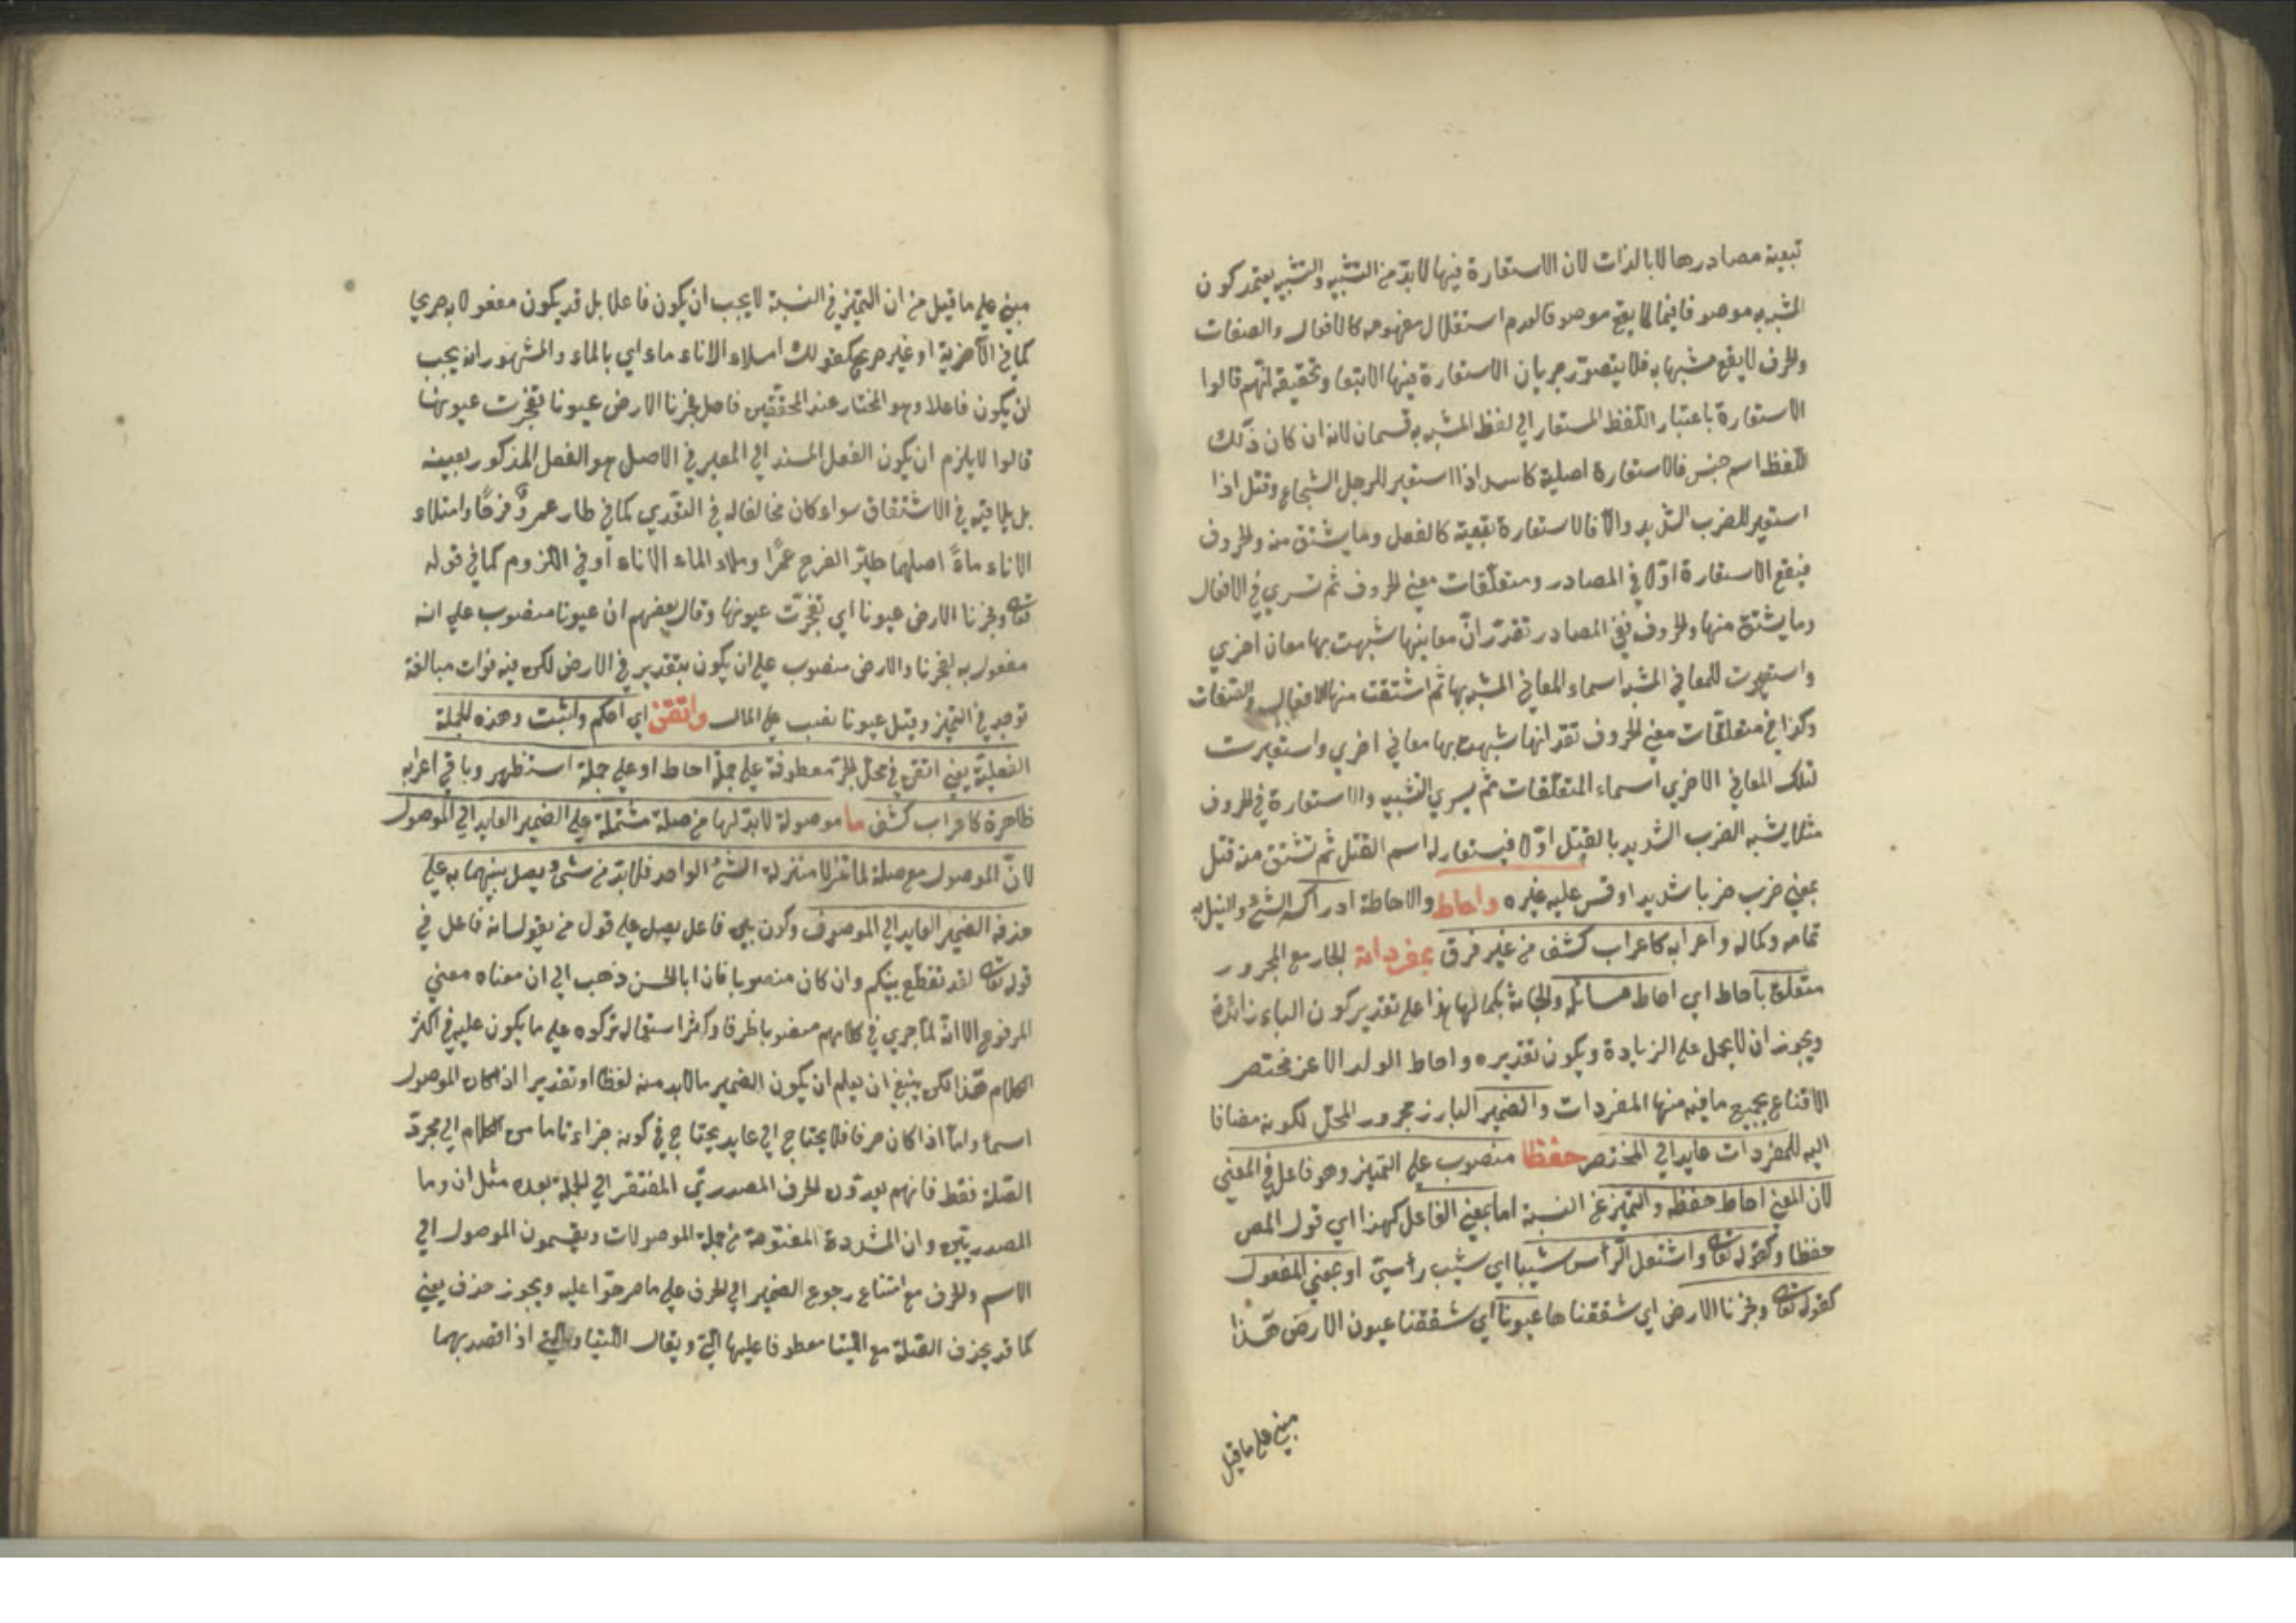 تبعية مصادرها لا بالذات لان الاستعارة فيها لا بد من التشبيه والتشبيه يعتمد كون
المشبه به موصوفا فيما لا يقع موصوفا لعدم استقلال مفهومه كالافعال والصفات
والحرف لا يقع مشبها به فلا يتصور جريان الاستعارة فيها الا تبعا وتحقيقه انهم قالوا
الاستعارة باعتبار اللفظ المستعار اي لفظ المشبه به قسمان لانه ان كان ذلك
اللفظ اسم جنس فالاستعارة اصلية كاسد اذا استعير للرجل الشجاع وقتل اذا
استعير للضرب الشديد والا فالاستعارة تبعية كالفعل وما يشتق منه والحروف
فيقع الاستعارة اولا في المصادر ومتعلقات معني الحروف ثم تسري في الافعال
وما يشتق منها والحروف ففي المصادر تقدر ان معانيها شبهت بها معان اخري
واستعيرت للمعاني المشبه اسماء المعاني المشبه بها ثم اشتقت منها الافعال والصفات
وكذا في متعلقات معني الحروف تقدر انها شبهت بها معاني اخري واستعيرت
لتلك المعاني الاخري اسماء المتعلقات ثم يسري التشبيه والاستعارة في الحروف
مثلا يشبه الضرب الشديد بالقتل اولا فيستعار له اسم القتل ثم تشتق منه قتل
بمعني ضرب ضربا شديدا وقس عليه غيره واحاط والاحاطة ادراك الشئ والنيل به
تمامه وكماله واعرابه كاعراب كشف من غير فرق بمفرداته الجار مع المجرور
متعلق باحاط اي احاط مسائله بكمالها هذا علي تقدير كون الباء زائدة
ويجوز ان لا يحمل علي الزيادة ويكون تقديره واحاط الولد الاعز مختصر
الاقناع بجميع ما فيه منها المفردات والضمير البارز مجرور المحل لكونه مضافا
اليه للمفردات عايد الي المختصر حفظا منصوب علي التمييز وهو فاعل في المعني
لان المعني احاط حفظه والتميز عن النسبة اما بمعني الفاعل كهذا اي قول المص
حفظا وكقوله تعالى واشتعل الرأس شيبا اي شيب رأسي او بمعني المفعول
كقوله تعالى وفجرنا الارض اي شققناها عيونا اي شققنا عيون الارض هذا
مبني علي ما قيل
مبني علي ما قيل من ان التميز في النسبة لا يجب ان يكون فاعلا بل قد يكون مفعولا به صريحا
كما في الآخرية او غير صريح كقولك املاء الاناء ماء اي بالماء والمشهور انه يجب
ان يكون فاعلا وهو المختار عند المحققين فاصل فجرنا الارض عيونا تفجرت عيونها
قالوا لا يلزم ان يكون الفعل المسند الي المعبر في الاصل هو الفعل المذكور بعينه
بل يلاقيه في الاشتقاق سواء كان مخالفا له في التعدي كما في طار عمرو فرحا وامتلاء
الاناء ماء اصلهما طير الفرح عمرا وملاء الماء الاناء او في اللزوم كما في قوله
تعالى وفجرنا الارض عيونا اي تفجرت عيونها وقال بعضهم ان عيونا منصوب علي انه
مفعول به لفجرنا والارض منصوب علي ان يكون بتقدير في الارض لكن فيه فوات مبالغة
توجد في التميز وقيل عيونا نصب علي الحال واتقن اي احكم واثبت وهذه الجملة
الفعلية يعني اتقن في محل الجر معطوفة علي جملة احاط او علي جملة استظهر وباقي اعرابه
ظاهرة كاعراب كشف ما موصولة لا بد لها من صلة مشتملة علي الضمير العايد الي الموصول
لان الموصول مع صلة لما تنزلا منزلة الشئ الواحد فلا بد من شئ يصل بينهما به علي
حذفه الضمير العايد الي الموصوف وكون بين فاعل يصل علي قول من يقول انه فاعل في
قوله تعالى لقد تقطع بينكم وان كان منصوبا فان ابا الحسن ذهب الي ان معناه معني
المرفوع الا انه لما جري في كلامهم منصوبا ظرفا وكثر استعماله تركوه علي ما يكون عليه في اكثر
الكلام هذا لكن ينبغي ان يعلم ان يكون الضمير مما لا بد منه لفظا او تقديرا اذا كان الموصول
اسما واما اذا كان حرفا فلا يحتاج الي عايد يحتاج في كونه جزاء تاما من الكلام الي مجرد
الصلة فقط فانهم يعدون الحرف المصدري المفتقر الي الجملة بعده مثل ان وما
المصدريتين وان المشددة المفتوحة من جملة الموصولات ويقسمون الموصول الي
الاسم والحرف مع امتناع رجوع الضمير الي الحرف علي ما صرحوا عليه ويجوز حذف يعني
كما قد يحذف الصلة مع اللتيا معطوفا عليها التي ويقال اللتيا والتي اذا قصد بهما